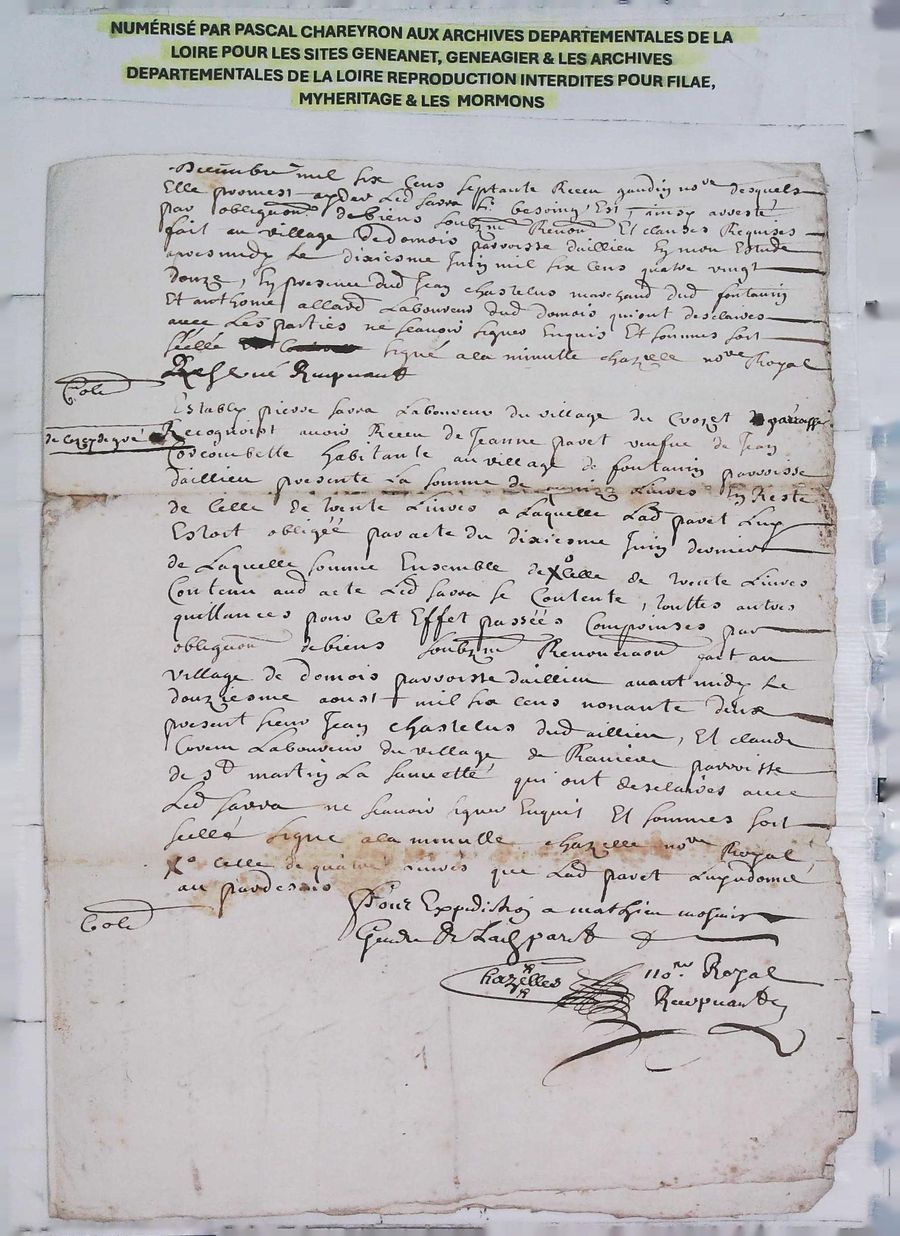 NUMÉRISÉ PAR PASCAL CHAREYRON AUX ARCHIVES DEPARTEMENTALES DE LA
LOIRE POUR LES SITES GENEANET, GENEAGIER & LES ARCHIVES
DEPARTEMENTALES DE LA LOIRE REPRODUCTION INTERDITES POUR FILAE,
MYHERITAGE & LES MORMONS
Decembre mil six cens septante Receu gaudin no.re desquels
Elle promest ayder Led Savra si besoing Est, ainsy arresté
par obligaon de biens soubzmi Renon Et clauses Requises
fait au village de domois parroisse daillieu En mon Estude
apres midy Le dixiesme Juin mil six cens quatre vingt
douze, En presence dud Jean chastelus marchand dud fontanin
Et anthoine allard Laboureur dud domois qui ont desclaires
avec Les parties ne scavoir signer Enquis Et sommes soit
seellé signé a la minutte chazelle no.re Royal
Estably pierre Savra Laboureur du village du Crozet
Recognoist avoir Receu de Jeanne paret veufue de Jean
Corcombette habitante au village de fontanin parroisse
daillieu presente La somme de Livres En Reste
de Celle de trente Livres a Laquelle Lad paret Luy
Estoit obligéé par acte du dixiesme Juin dernier
de Laquelle somme Ensemble de X Celle de trente Livres
Contenu aud acte Led Savra se Contente, touttes autres
quittances pour cet Effet passéés Comprinses par
obligaon de biens soubzmi Renonciaon fait au
village de domois parroisse daillieu avant midy Le
douziesme aoust mil six cens nonante deux
present sieur Jean chastelus dud aillieu, Et claude
Laboureur du village de parroisse
de St martin La Sauvetté qui ont desclairés avec
Led Savra ne scavoir signer Enquit Et sommes soit
seellé signé a la minutte chazelle no.re Royal
X celle de quatre Livres que Lad paret Luy a donné
au pardessus
Pour Expedition a mathieu
Gendre de Lad paret
Chazelles no.re Royal